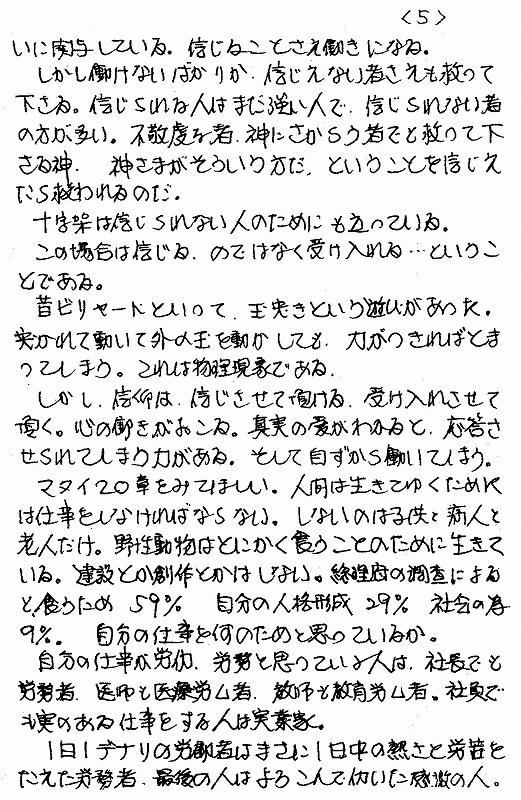 〈5〉
いに関与している。信じることさえ働きになる。
しかし働けないばかりか、信じえない者さえも救って
下さる。信じられる人はまだ強い人で、信じられない者
の方が多い。不敬虔な者、神にさからう者でも救って下
さる神、神さまがそういう方だ、ということを信じえ
たら救われるのだ。
十字架は信じられない人のためにも立っている。
この場合は信じる、のではなく受け入れる…というこ
とである。
昔ビリヤードといって、玉突きという遊びがあった。
突かれて動いて外の玉を動かしても、力がつきればとま
ってしまう。これは物理現象である。
しかし、信仰は、信じさせて頂ける、受け入れさせて
頂く。心の働きがおこる。真実の愛がわかると、応答さ
せられてしまう力がある。そして自ずから働いてしまう。
マタイ20章をみてほしい。人間は生きてゆくために
は仕事をしなければならない。しないのは子供と病人と
老人だけ。野性動物はとにかく食うことのために生きて
いる。建設とか創作とかはしない。総理府の調査による
と、食うため 59% 自分の人格形成 29% 社会の為
9%。 自分の仕事を何のためと思っているか。
自分の仕事が労働、労務と思っている人は、社長でも
労務者、医師も医療労ム者、教師も教育労ム者。社員で
も実のある仕事をする人は実業家。
1日1デナリの労働者はまさに1日中の熱さと労苦を
たえた労務者、最後の人はよろこんで働いた感激の人。